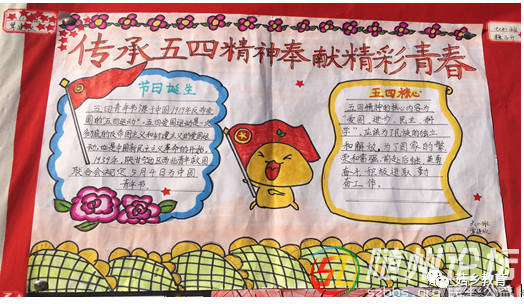 传承五四精神奉献精彩青春
节日诞生
五四青年节源于中国1919年反帝爱
国的"五四运动"。五四爱国运动是一次
彻底的反帝国主义和封建主义的爱国运
动,也是中国新民主主义革命的开始,
1939年,陕甘宁边区西北青年救国
联合会规定5月4日为中国
青年节。
五四核心
五四精神的核心内容为
"爱国、进步、民主、科
学",应该为了民族的独立
和解放,为了国家的繁
荣和富强,前赴后继,英勇
奋斗,积极进取,勤
奋工作。
随州论坛
szbbs.org
尚乡教育